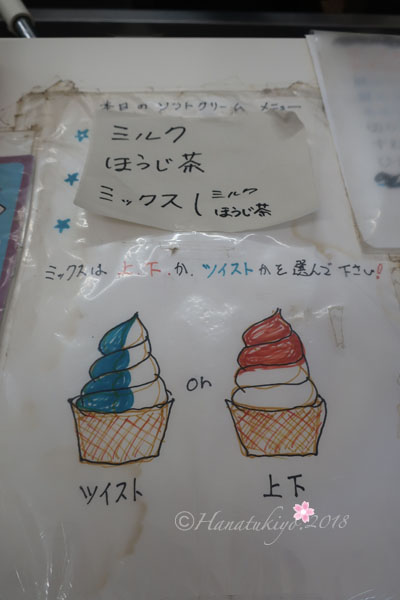 本日のソフトクリーム メニュー
ミルク
ほうじ茶
ミックス ( ミルク
ほうじ茶
ミックスは 上下 か、ツイストかを選んで下さい!
or
ツイスト
上下
©Hanatukiyo.2018